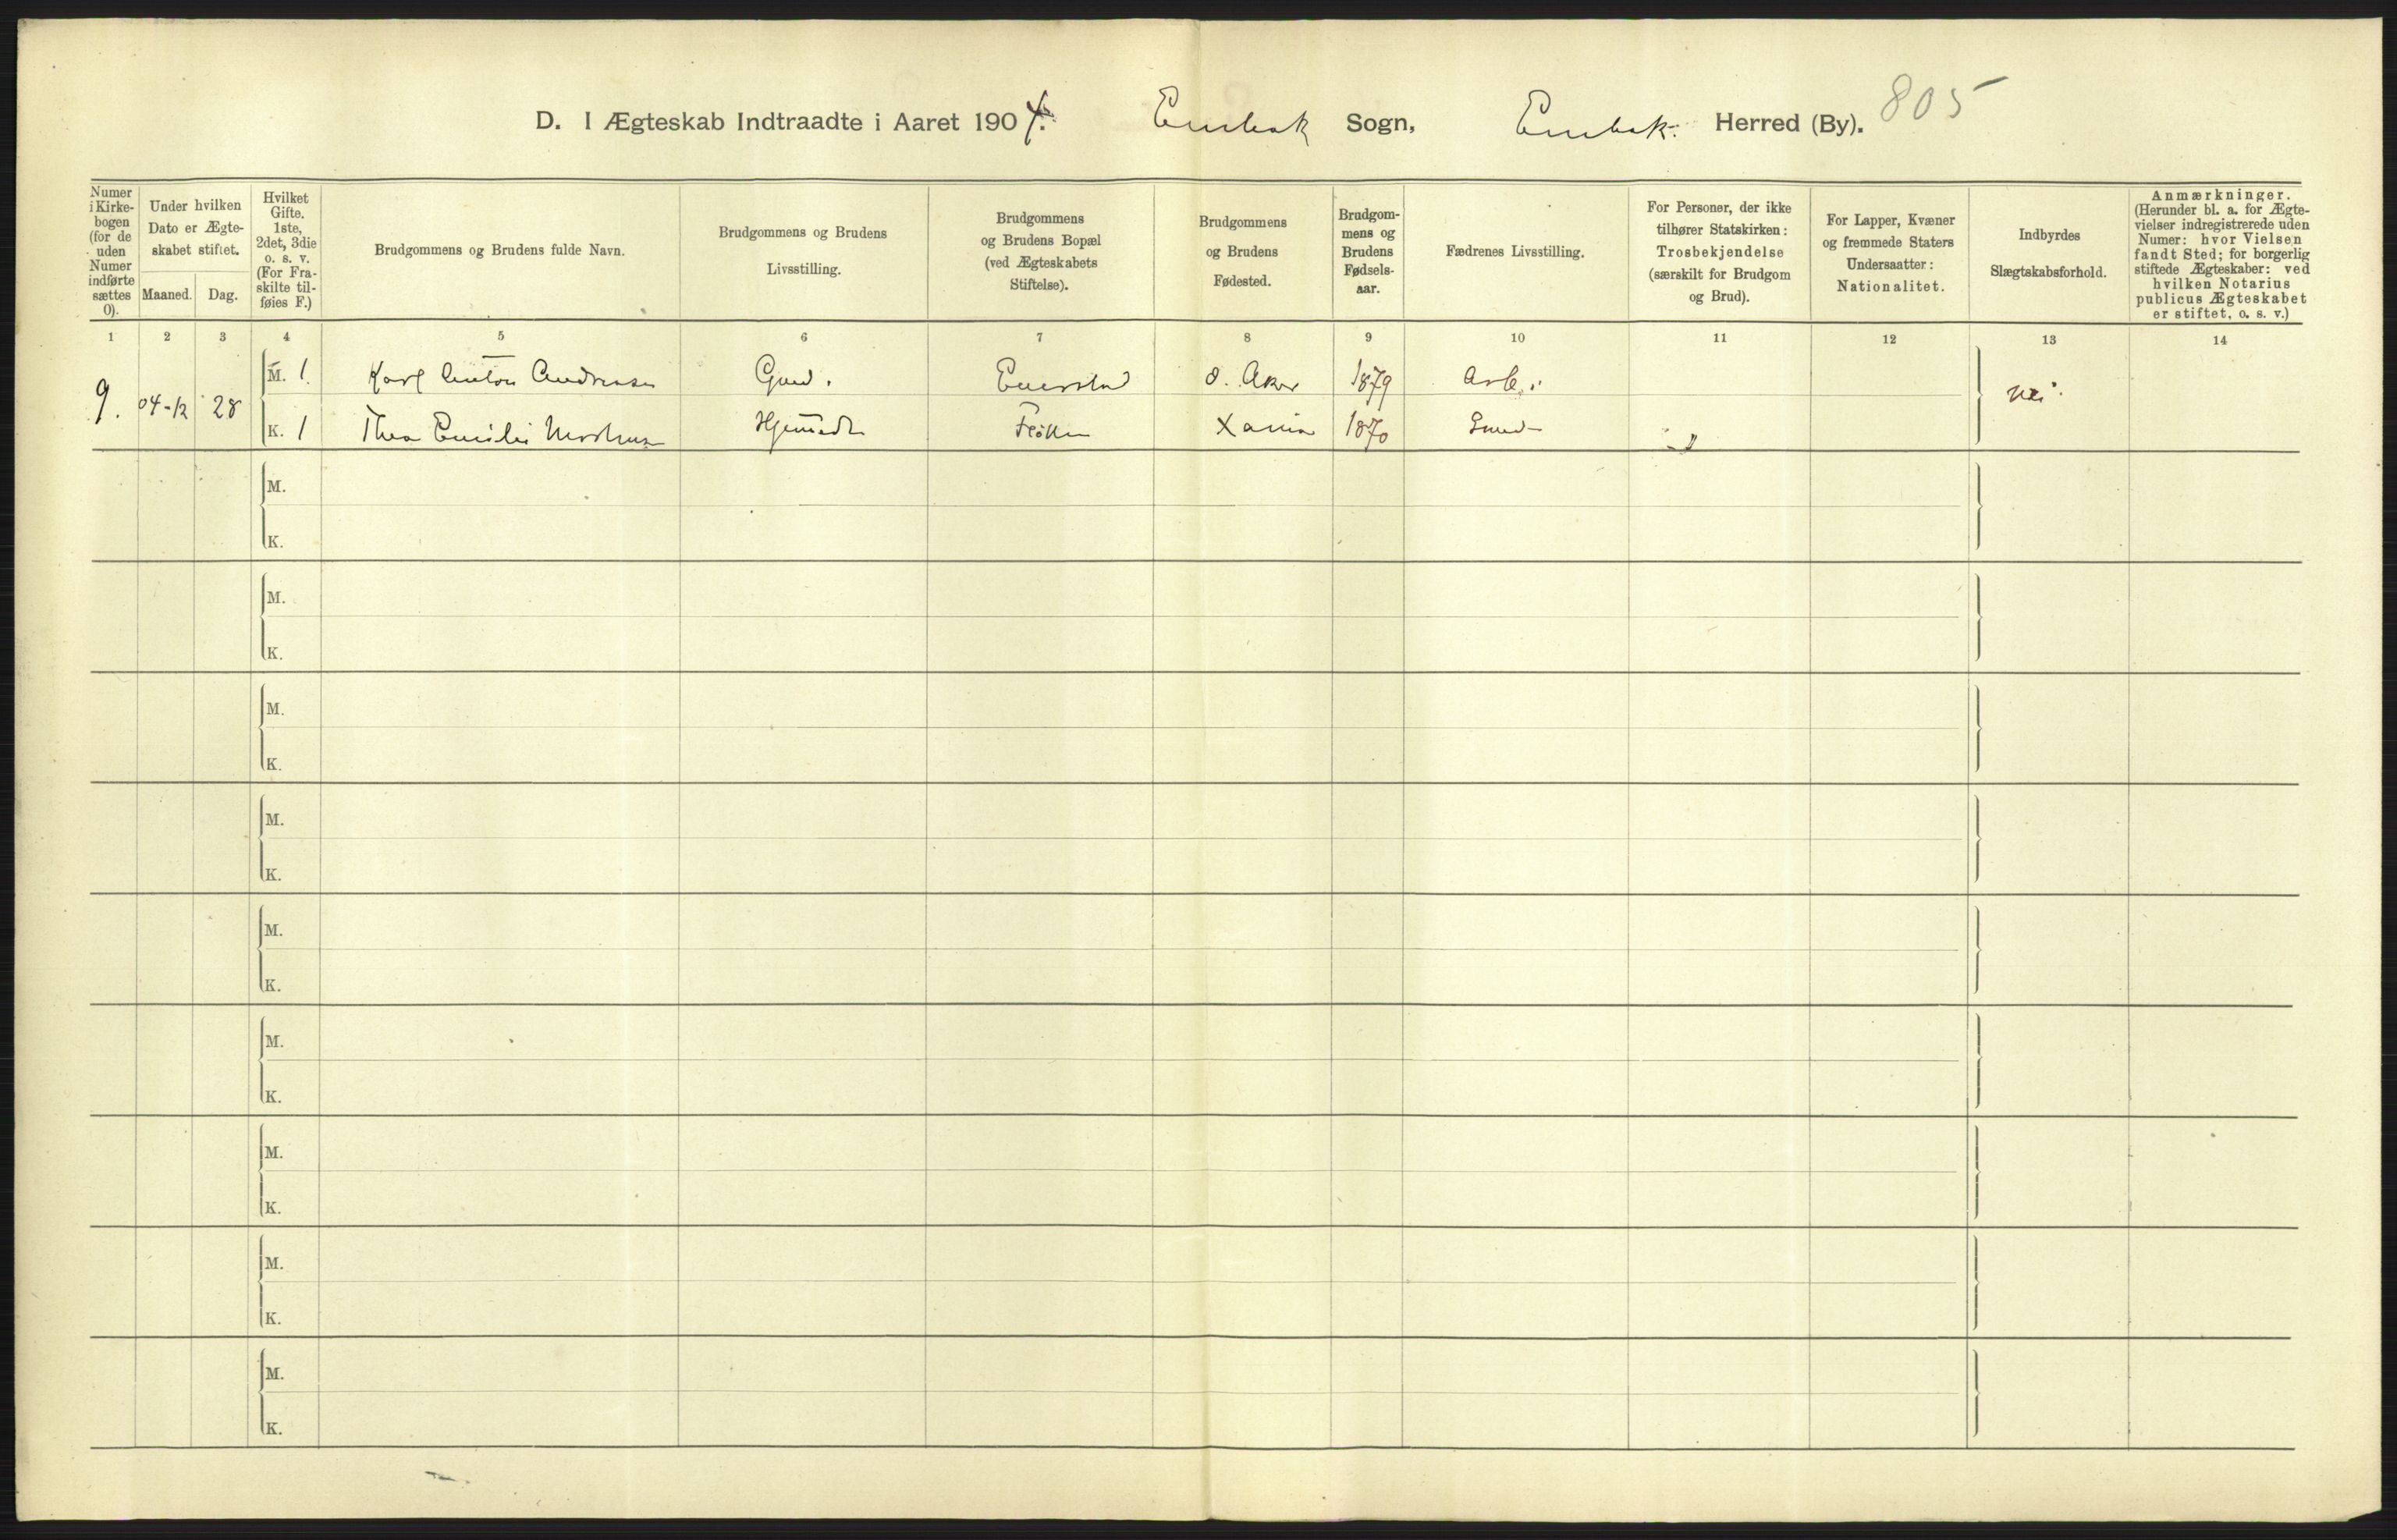 D. I Ægteskab Indtraadte i Aaret 1904. Enebak Sogn, Enebak Herred (By). 805
Numer i Kirkebogen (for de uden Numer indførte sættes 0).
Under hvilken Dato er Ægteskabet stiftet.
Maaned. Dag.
Hvilket Gifte. 1ste, 2det, 3die o. s. v. (For Fraskilte tilføies F.)
Brudgommens og Brudens fulde Navn.
Brudgommens og Brudens Livsstilling.
Brudgommens og Brudens Bopæl (ved Ægteskabets Stiftelse).
Brudgommens og Brudens Fødested.
Brudgommens og Brudens Fødselsaar.
Fædrenes Livsstilling.
For Personer, der ikke tilhører Statskirken: Trosbekjendelse (særskilt for Brudgom og Brud).
For Lapper, Kvæner og fremmede Staters Undersaatter: Nationalitet.
Indbyrdes Slægtskabsforhold.
Anmærkninger. (Herunder bl. a. for Ægtevielser indregistrerede uden Numer: hvor Vielsen fandt Sted; for borgerlig stiftede Ægteskaber: ved hvilken Notarius publicus Ægteskabet er stiftet, o. s. v.)
1 2 3 4 5 6 7 8 9 10 11 12 13 14
9. 04-12 28 M. 1 Karl Anton Andresen Ø. Aker 1879 Arb. nei
K. 1 Thea Emilie Xania 1870 Smed
M.
K.
M.
K.
M.
K.
M.
K.
M.
K.
M.
K.
M.
K.
M.
K.
M.
K.